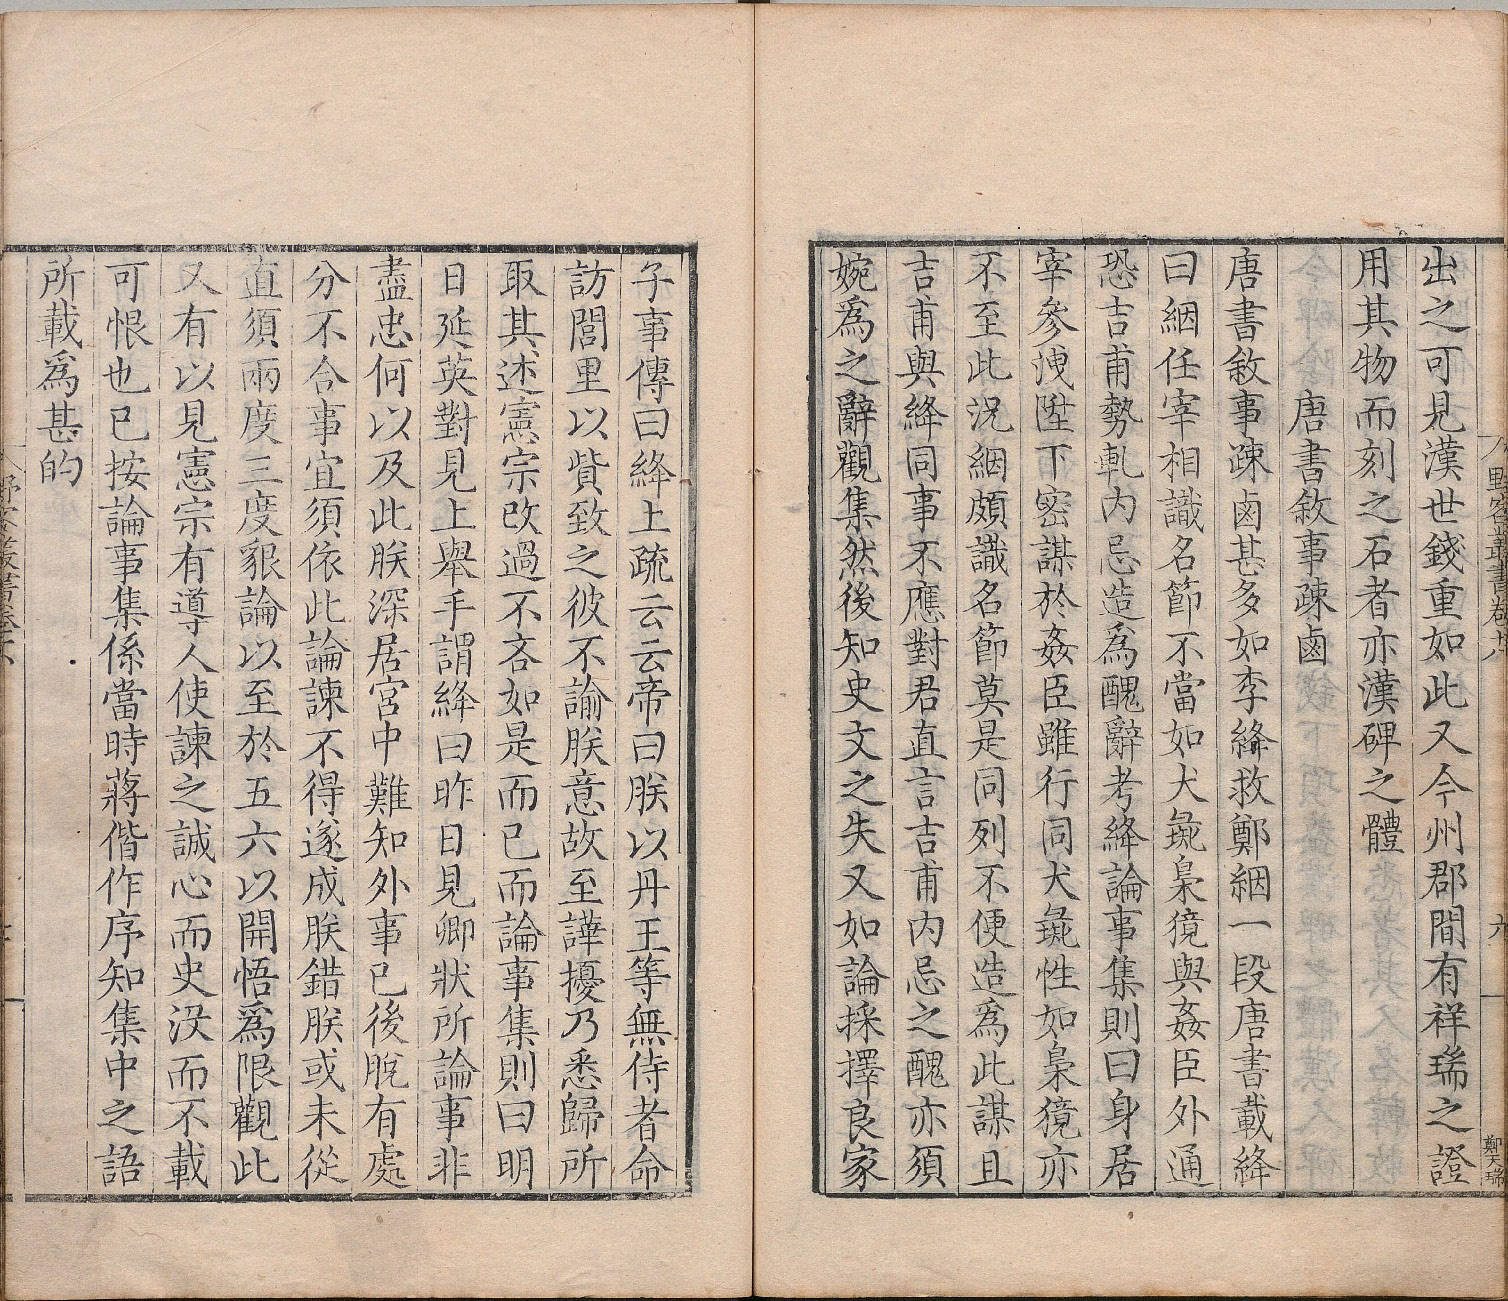 出之可見漢世錢重如此又今州郡間有祥瑞之證
用其物而刻之石者亦漢碑之體
唐書敘事疎鹵
唐書敘事疎鹵甚多如李絳救鄭絪一段唐書載絳
曰絪任宰相識名節不當如犬彘梟獍與姦臣外通
恐吉甫勢軋內忌造爲醜辭考絳論事集則曰身居
宰參洩陛下密謀於姦臣雖行同犬彘性如梟獍亦
不至此況絪頗識名節莫是同列不便造爲此謀且
吉甫與絳同事不應對君直言吉甫內忌之醜亦須
婉爲之辭觀集然後知史文之失又如論採擇良家
子事傳曰絳上疏云云帝曰朕以丹王等無侍者命
訪閭里以貲致之彼不諭朕意故至譁擾乃悉歸所
取其述憲宗改過不吝如是而已而論事集則曰明
日延英對見上舉手謂絳曰昨日見卿狀所論事非
盡忠何以及此朕深居宮中難知外事已後脫有處
分不合事宜須依此論諫不得遂成朕錯朕或未從
直須兩度三度貇論以至於五六以開悟爲限觀此
又有以見憲宗有導人使諫之誠心而史沒而不載
可恨也已按論事集係當時蔣偕作序知集中之語
所載爲甚的
野客叢書卷
六
鄭天瑞